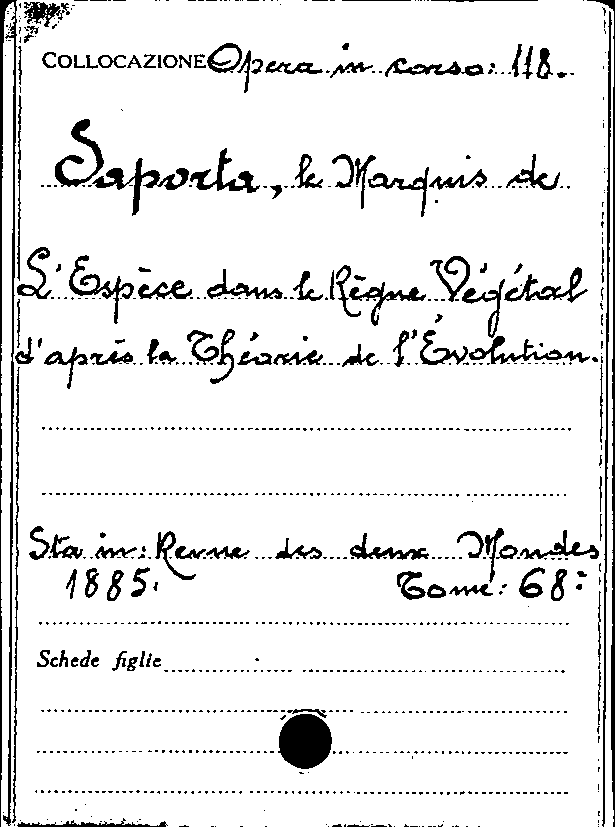 COLLOCAZIONE Opera in corso: 118.
Saporta, le Marquis de
L'Espèce dans le Règne Végétal
d'après la Théorie de l'Évolution.
Sta in: Revue des deux Mondes
1885. Tome: 68:
Schede figlie